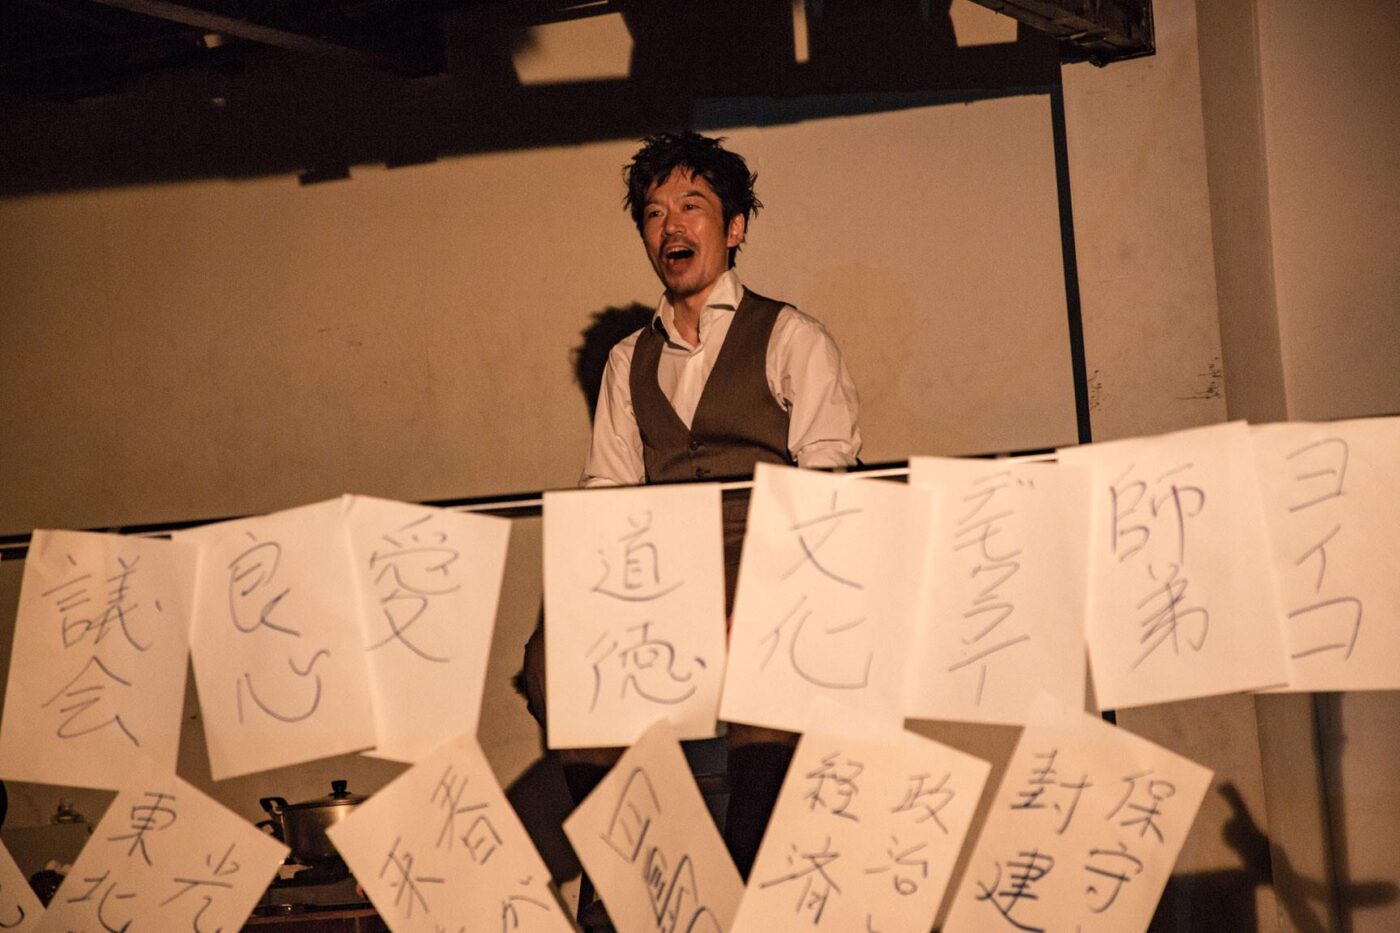 議会
良心
愛
道徳
文化
デモクラシー
師弟
ヨイコ
東北
光
春が
来
経済
政治
封建
保守